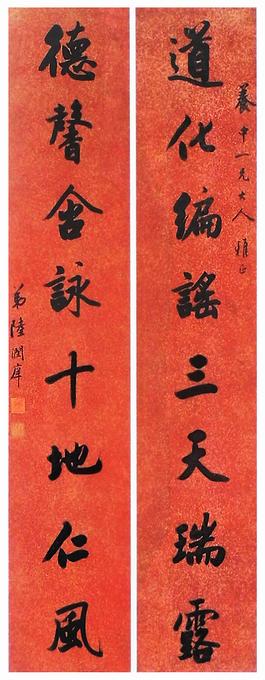 養中一兄大人雅正
道化編謠三天瑞露
德馨含詠十地仁風
弟陸潤庠